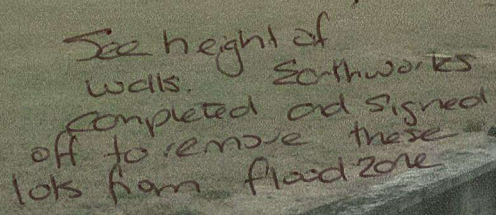 See height of
walls. Earthworks
completed and signed
off to remove these
lots from flood zone